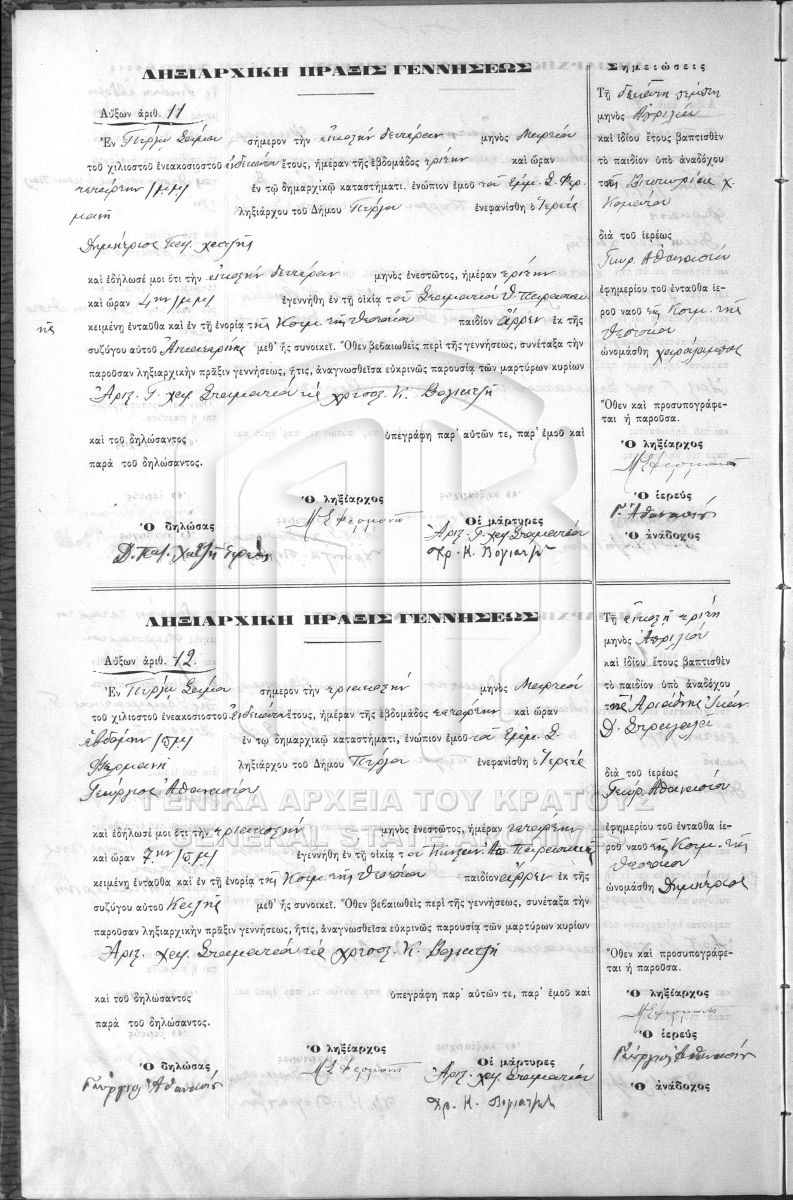 ΛΗΞΙΑΡΧΙΚΗ ΠΡΑΞΙΣ ΓΕΝΝΗΣΕΩΣ
Αὔξων ἀριθ. 11
Ἐν Πύργῳ Σάμου σήμερον τὴν εἰκοστήν δευτέραν μηνὸς Μαρτίου
τοῦ χιλιοστοῦ ἐνεακοσιοστοῦ ἑνδεκάτου ἔτους, ἡμέραν τῆς ἑβδομάδος τρίτην καὶ ὥραν
τετάρτην μ.μ. ἐν τῷ δημαρχικῷ καταστήματι, ἐνώπιον ἐμοῦ τοῦ Ἐμμ. Σ. Φερ
μανῆ ληξιάρχου τοῦ Δήμου Πύργου ἐνεφανίσθη ὁ Ἱερεύς
Δημήτριος Παπ. χατζῆς
καὶ ἐδήλωσέ μοι ὅτι τὴν εἰκοστήν δευτέραν μηνὸς ἐνεστῶτος, ἡμέραν τρίτην
καὶ ὥραν 4ην μ.μ. ἐγεννήθη ἐν τῇ οἰκίᾳ τοῦ Σταματίου
κειμένῃ ἐνταῦθα καὶ ἐν τῇ ἐνορίᾳ τῆς Κοιμ. τῆς Θεοτόκου παιδίον ἄρρεν ἐκ τῆς
τῆς
συζύγου αὐτοῦ μεθ' ἧς συνοικεῖ. Ὅθεν βεβαιωθεὶς περὶ τῆς γεννήσεως, συνέταξα τὴν
παροῦσαν ληξιαρχικὴν πρᾶξιν γεννήσεως, ἥτις, ἀναγνωσθεῖσα εὐκρινῶς παρουσίᾳ τῶν μαρτύρων κυρίων
Ἀριστ. Γ. χατζ Σταματίου κ χρυσοστ. Κ. Βογιατζῆ
καὶ τοῦ δηλώσαντος ὑπεγράφη παρ' αὐτῶν τε, παρ' ἐμοῦ καὶ
παρὰ τοῦ δηλώσαντος.
Ὁ ληξίαρχος
Μ Σ Φερμανῆς
Ὁ δηλώσας
Δ. Παπ. Χατζῆ Ἱερεύς
Οἱ μάρτυρες
Ἀριστ. Γ. χατζ Σταματίου
Χρ. Κ. Βογιατζῆς
Σημειώσεις
Τῇ δεκάτῃ πέμπτῃ
μηνὸς Ἀπριλίου
καὶ ἰδίου ἔτους βαπτισθὲν
τὸ παιδίον ὑπὸ ἀναδόχου
τοῦ χ.
διὰ τοῦ ἱερέως
Γεωρ. Ἀθανασίου
ἐφημερίου τοῦ ἐνταῦθα ἱε-
ροῦ ναοῦ τῆς Κοιμ. τῆς
Θεοτόκου
ὠνομάσθη χαράλαμπος
Ὅθεν καὶ προσυπογράφε-
ται ἡ παροῦσα.
Ὁ ληξίαρχος
Μ Σ Φερμανῆς
Ὁ ἱερεύς
Γ. Ἀθανασίου
Ὁ ἀνάδοχος
ΛΗΞΙΑΡΧΙΚΗ ΠΡΑΞΙΣ ΓΕΝΝΗΣΕΩΣ
Αὔξων ἀριθ. 12.
Ἐν Πύργῳ Σάμου σήμερον τὴν τριακοστήν μηνὸς Μαρτίου
τοῦ χιλιοστοῦ ἐνεακοσιοστοῦ ἑνδεκάτου ἔτους, ἡμέραν τῆς ἑβδομάδος τετάρτην καὶ ὥραν
ἑβδόμην π.μ. ἐν τῳ δημαρχικῷ καταστήματι, ἐνώπιον ἐμοῦ τοῦ Ἐμμ. Σ.
Φερμανῆ ληξιάρχου τοῦ Δήμου Πύργου ἐνεφανίσθη ὁ Ἱερεύς
Γεώργιος Ἀθανασίου
καὶ ἐδήλωσέ μοι ὅτι τὴν τριακοστήν μηνὸς ἐνεστῶτος, ἡμέραν τετάρτην
καὶ ὥραν 7ην π.μ. ἐγεννήθη ἐν τῇ οἰκίᾳ τοῦ
κειμένῃ ἐνταῦθα καὶ ἐν τῇ ἐνορίᾳ τῆς Κοιμ. τῆς Θεοτόκου παιδίον ἄρρεν ἐκ τῆς
συζύγου αὐτοῦ Καλῆς μεθ' ἧς συνοικεῖ. Ὅθεν βεβαιωθεὶς περὶ τῆς γεννήσεως, συνέταξα τὴν
παροῦσαν ληξιαρχικὴν πρᾶξιν γεννήσεως, ἥτις, ἀναγνωσθεῖσα εὐκρινῶς παρουσίᾳ τῶν μαρτύρων κυρίων
Ἀριστ. χατζ Σταματίου κ χρυσοστ. Κ. Βογιατζῆ
καὶ τοῦ δηλώσαντος ὑπεγράφη παρ' αὐτῶν τε, παρ' ἐμοῦ καὶ
παρὰ τοῦ δηλώσαντος.
Ὁ ληξίαρχος
Μ Σ Φερμανῆς
Ὁ δηλώσας
Γεώργιος Ἀθανασίου
Οἱ μάρτυρες
Ἀριστ. χατζ Σταματίου
Χρ. Κ. Βογιατζῆς
Τῇ εἰκοστῇ τρίτῃ
μηνὸς Ἀπριλίου
καὶ ἰδίου ἔτους βαπτισθὲν
τὸ παιδίον ὑπὸ ἀναδόχου
τῆς Ἀριάδνης
διὰ τοῦ ἱερέως
Γεωρ. Ἀθανασίου
ἐφημερίου τοῦ ἐνταῦθα ἱε-
ροῦ ναοῦ τῆς Κοιμ. τῆς
Θεοτόκου
ὠνομάσθη Δημήτριος
Ὅθεν καὶ προσυπογράφε-
ται ἡ παροῦσα.
Ὁ ληξίαρχος
Μ Σ Φερμανῆς
Ὁ ἱερεύς
Γεώργιος Ἀθανασίου
Ὁ ἀνάδοχος
ΓΕΝΙΚΑ ΑΡΧΕΙΑ ΤΟΥ ΚΡΑΤΟΥΣ
GENERAL STATE ARCHIVES